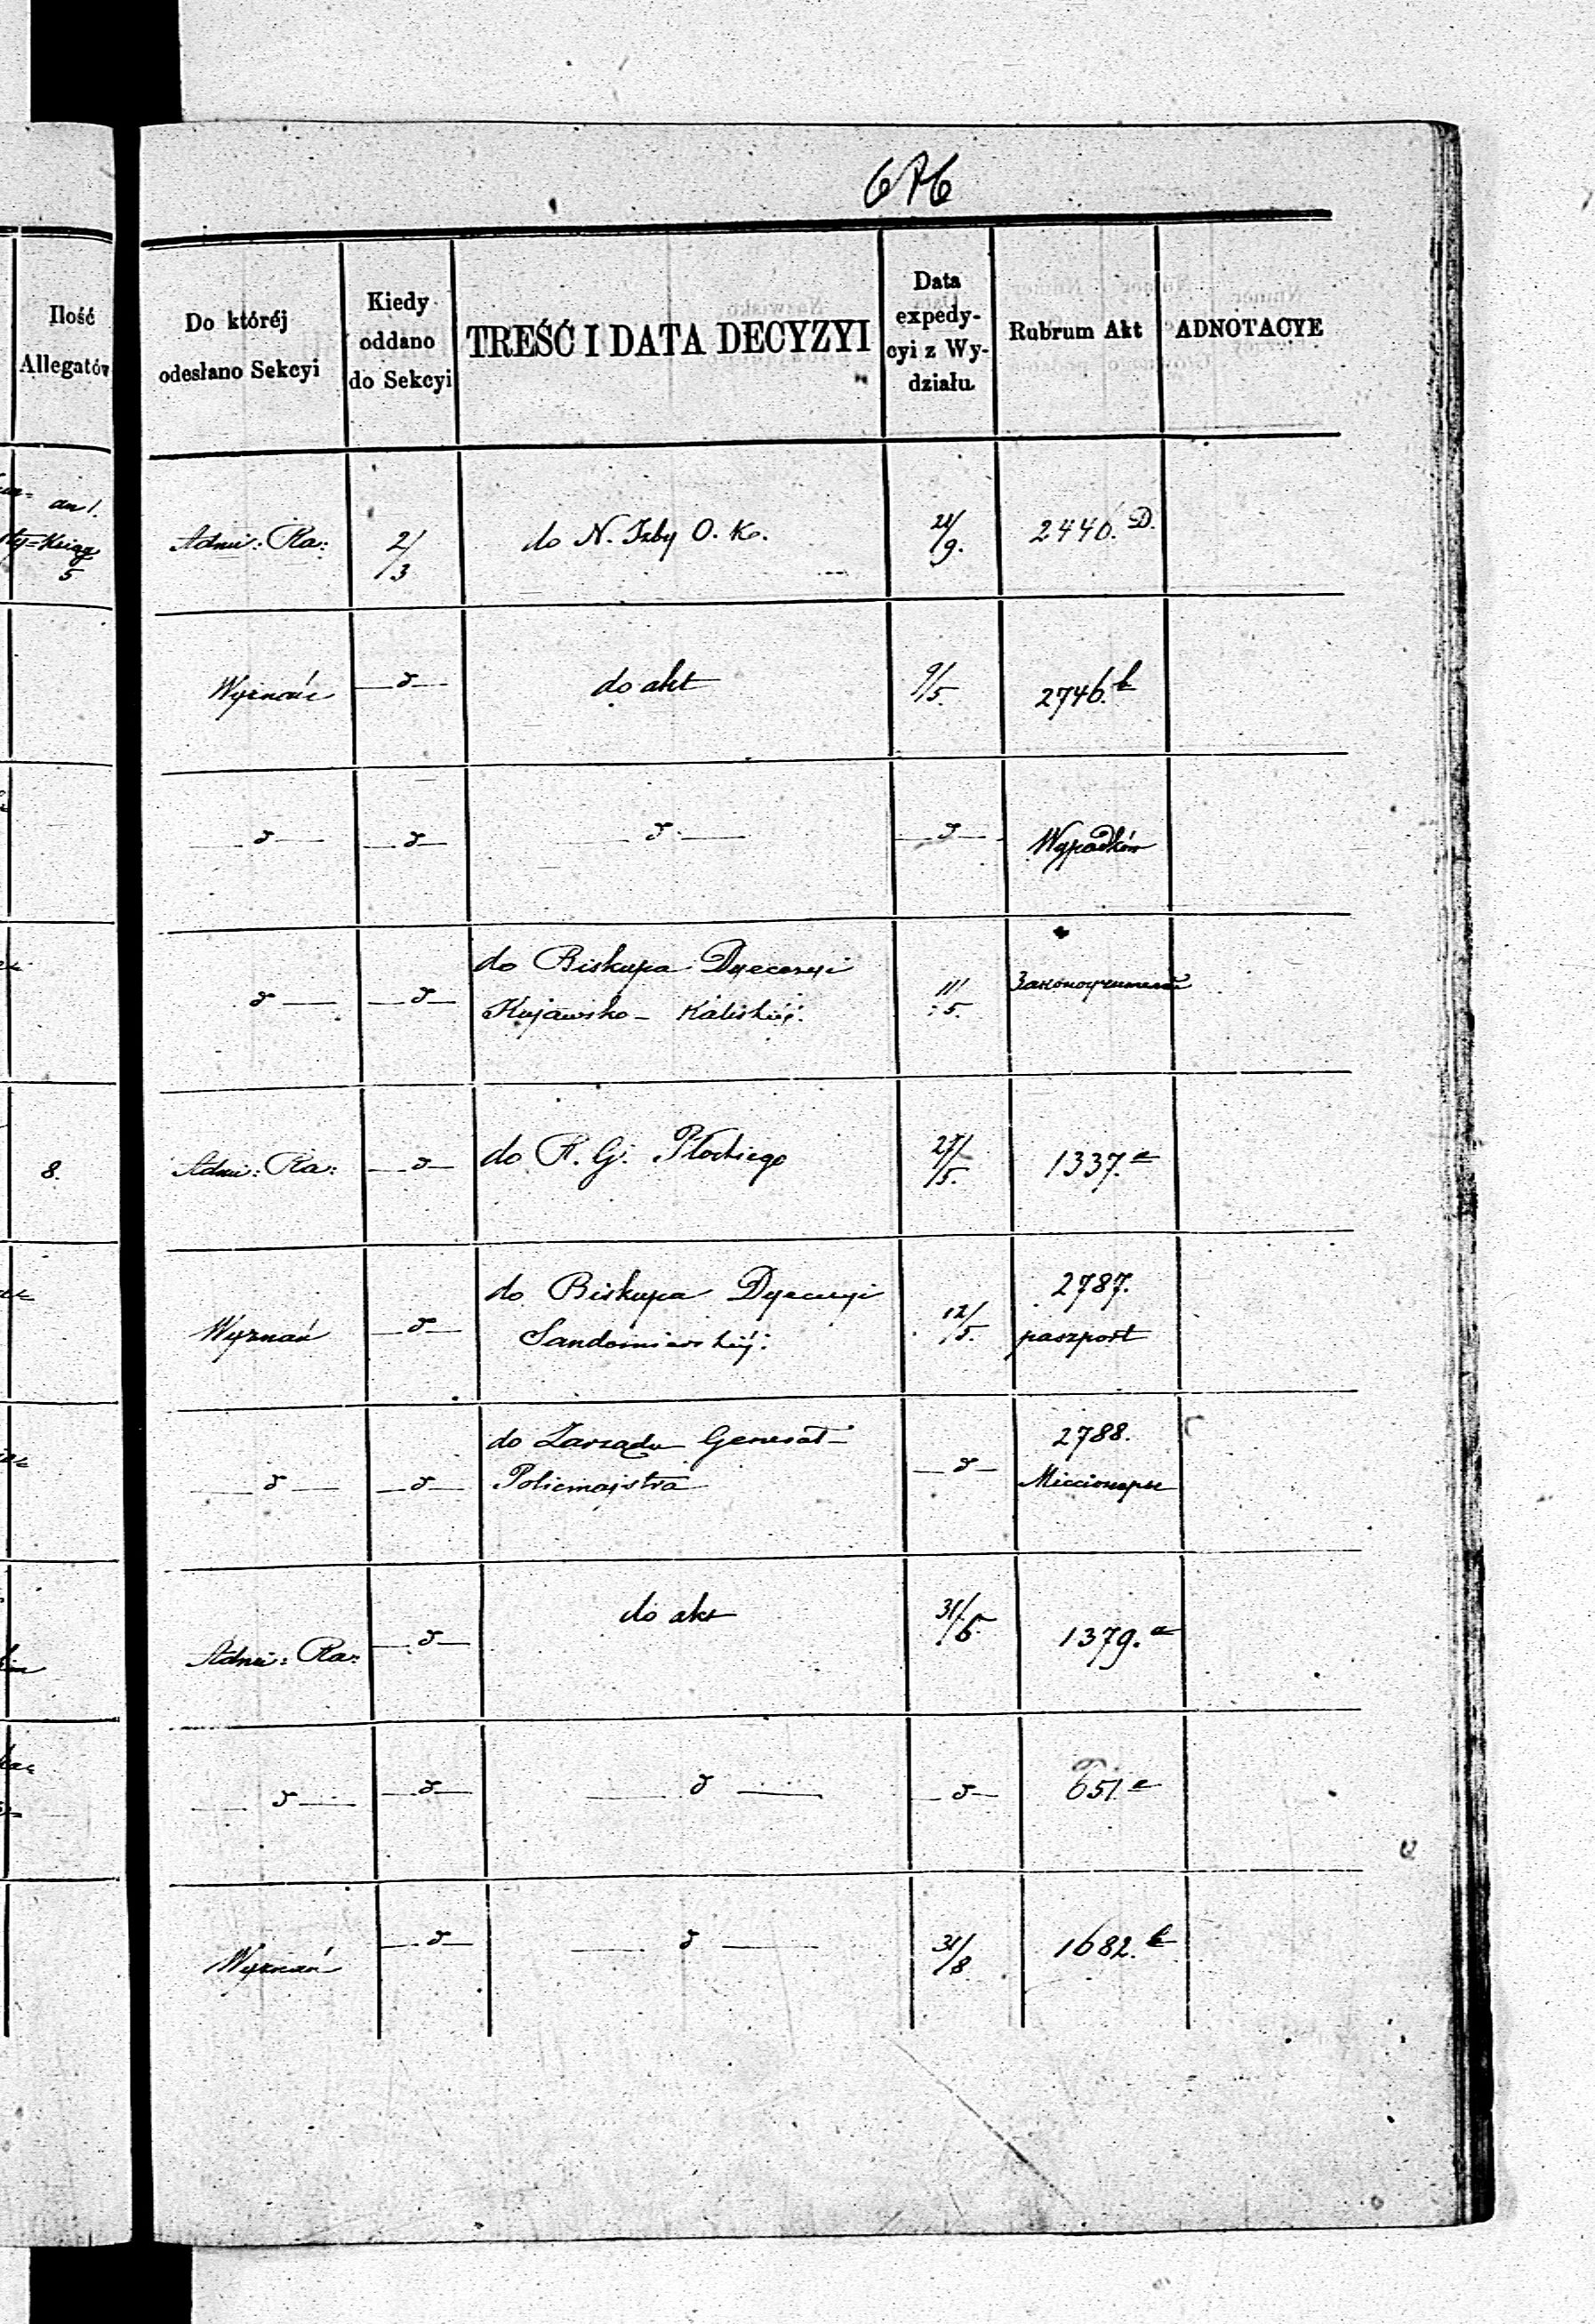 676
Ilość
Allegatów
Do któréj
odesłano Sekcyi
Kiedy
oddano
do Sekcyi
TREŚĆ I DATA DECYZYI
Data
expedy-
cyi z Wy-
działu
Rubrum Akt
ADNOTACYE
Ksiąg
5
Admi: Ra: 2/3 do N. Izby O. Ko. 21/9. 2440. D.
Wyznań — d — do akt 9/5. 2746. b
— d — — d — — d — — d — Wypadków
— d — — d — do Biskupa Dyecezyi
Kujawsko-Kaliskiéj. 11/5.
8. Admi: Ra: — d — do R. G. Płockiego 27/5. 1337. a
Wyznań — d — do Biskupa Dyecezyi
Sandomierskiéj: 12/5. 2787.
paszport
— d — — d — do Zarządu Generał-
Policmajstra — d — 2788.
Миссионеры
Admi: Ra: — d — do akt 31/5 1379. a
— d — — d — — d — — d — 651. a
Wyznań — d — — d — 31/8 1682. b